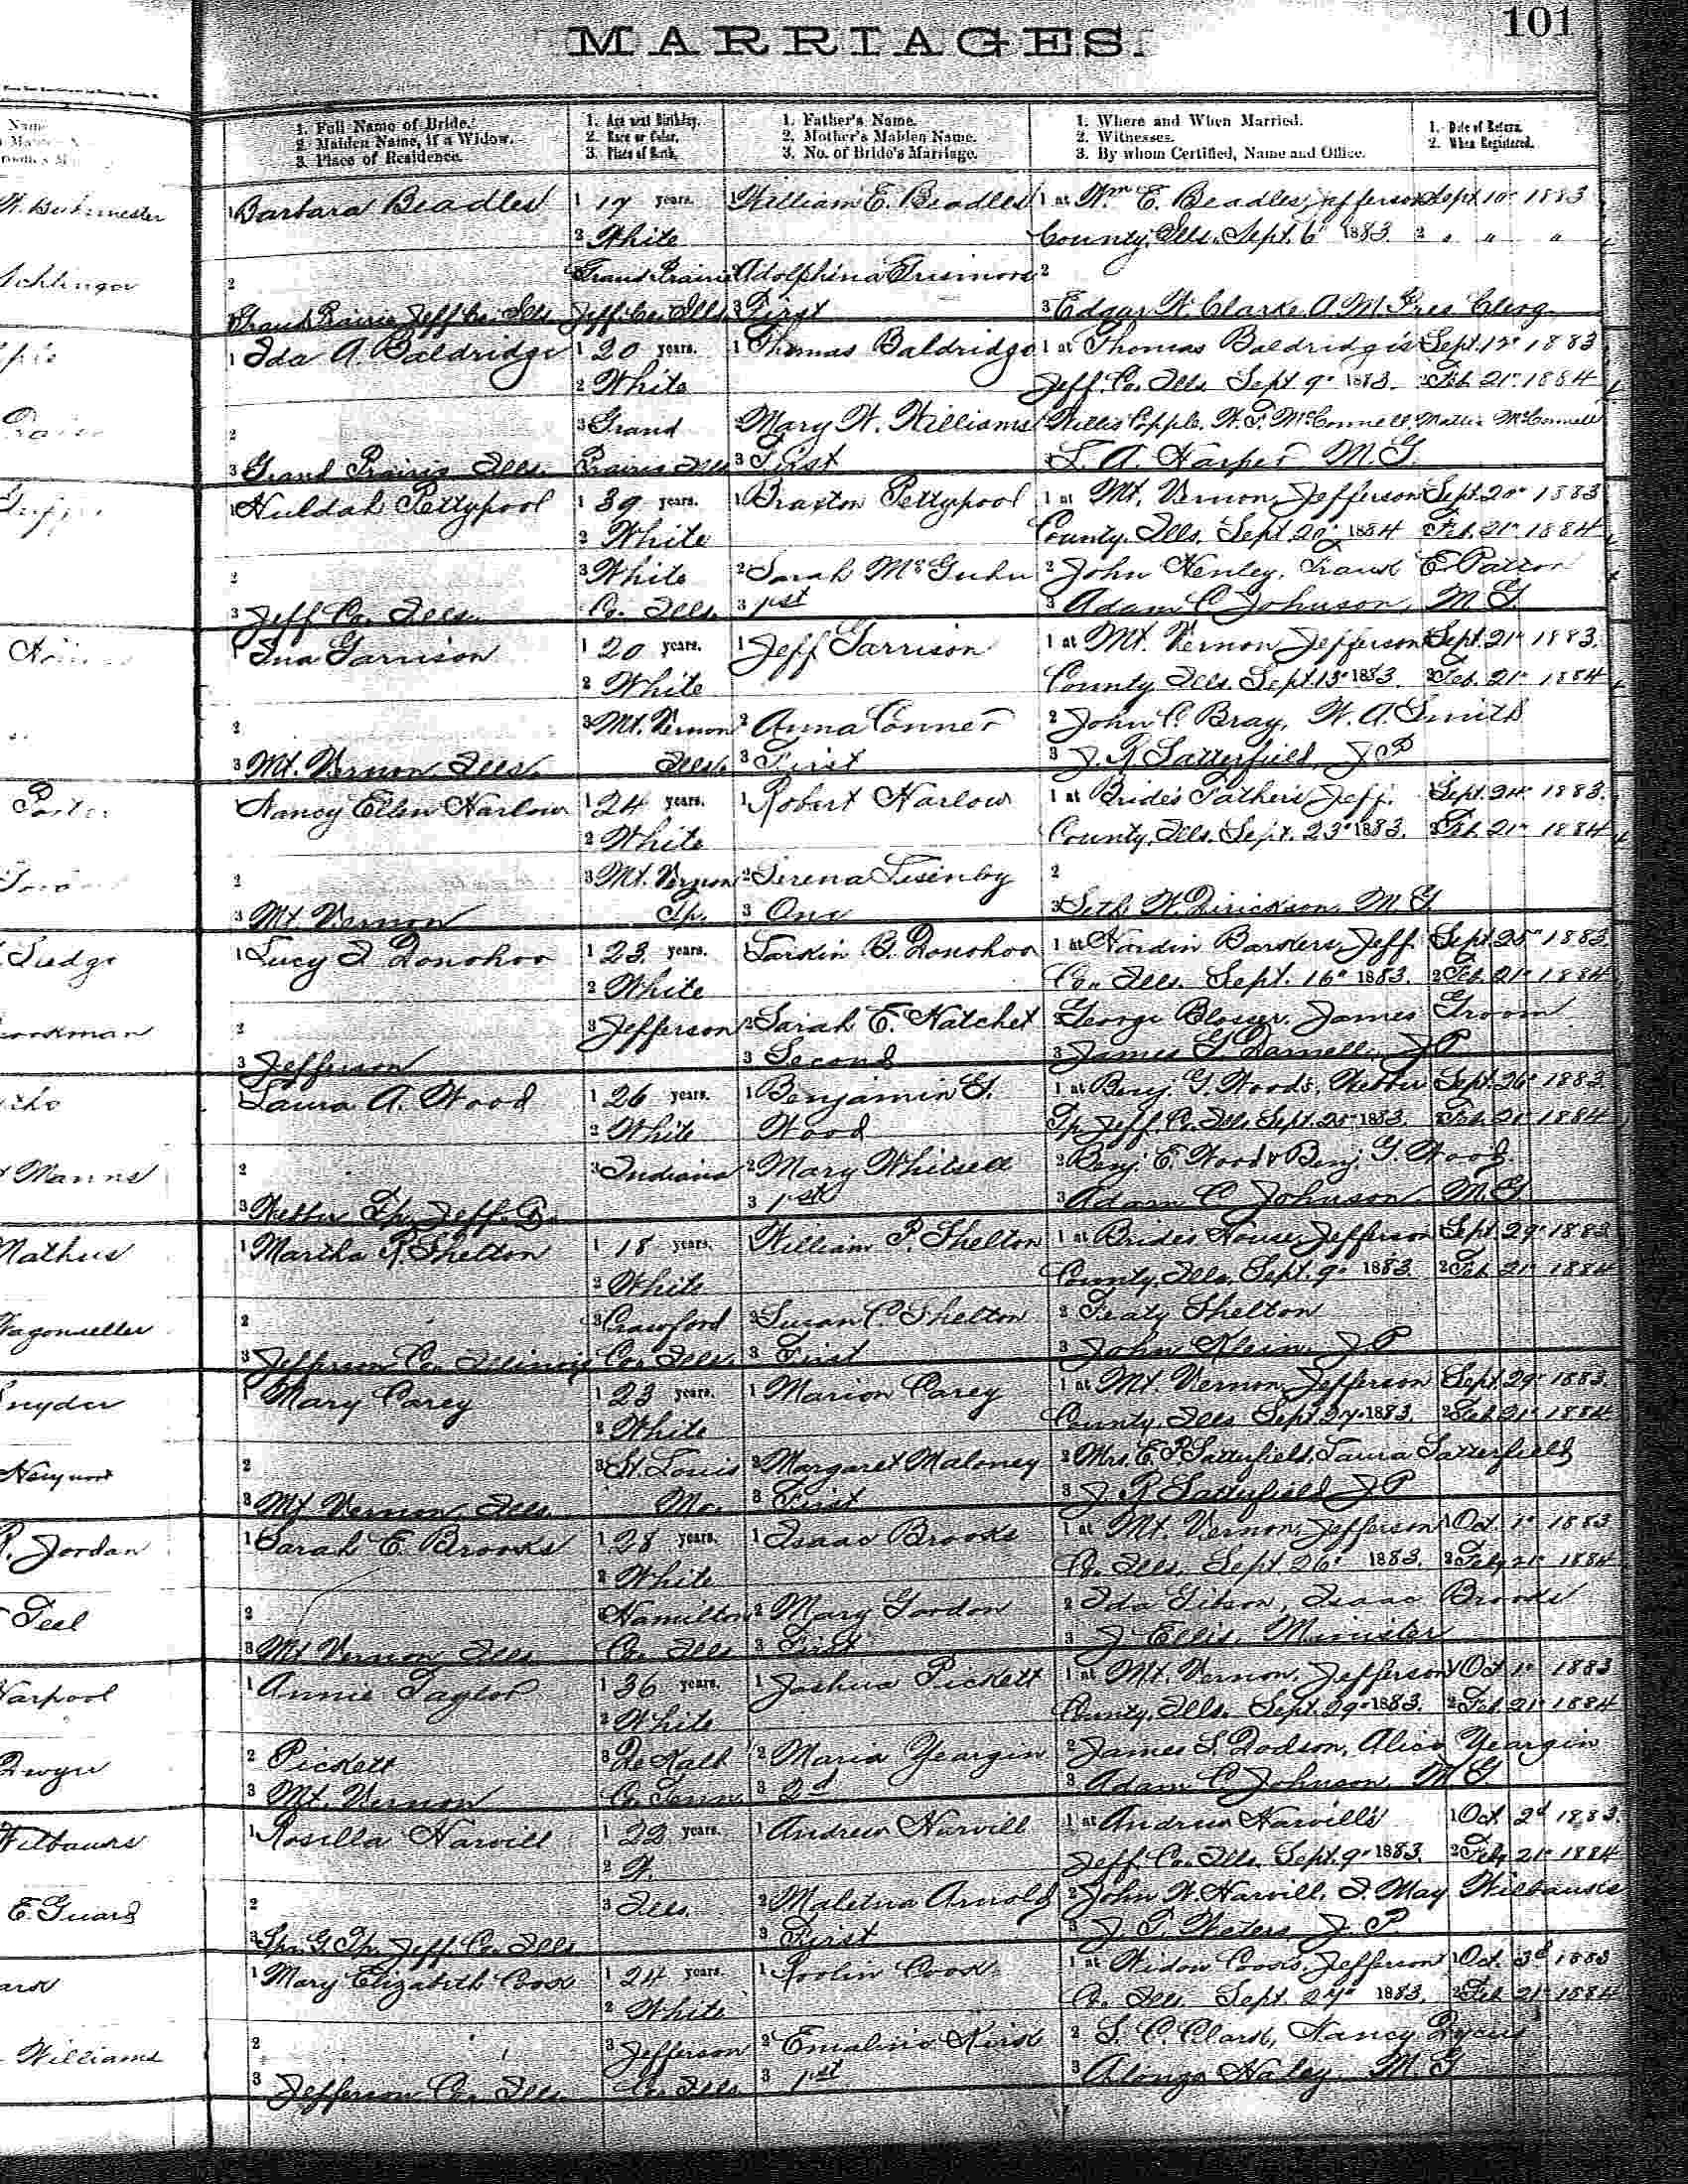 MARRIAGES.
101
1. Full Name of Bride.
2. Maiden Name, if a Widow.
3. Place of Residence.
1. Age next Birthday.
2. Race or Color.
3. Place of Birth.
1. Father's Name.
2. Mother's Maiden Name.
3. No. of Bride's Marriage.
1. Where and When Married.
2. Witnesses.
3. By whom Certified, Name and Office.
1. Date of Return.
2. When Registered.
1 Barbara Beadles 1 17 years. 1 William E. Beadles 1 at Wm E. Beadles, Jefferson Sept. 10" 1883
2 White County, Ills. Sept. 6" 1883. 2 " " "
2 Grand Prairie 2 Adolphina 2
3 Grand Prairie Jeff. Co. Ills Jeff. Co. Ills. 3 First 3 Edgar W. Clarke, A.M. Pres. Clerg.
1 Ida A. Baldridge 1 20 years. 1 Thomas Baldridge 1 at Thomas Baldridge's Sept. 12" 1883
2 White Jeff. Co. Ills. Sept. 9" 1883. 2 Feb. 21" 1884
2 3 Grand 2 Mary W. Williams Willis Copple, W. T. McConnell, Mattie McConnell
3 Grand Prairie Ills. Prairie Ills 3 First 3 L. A. Harper M. G.
1 Huldah Pettypool 1 39 years. 1 Braxton Pettypool 1 at Mt. Vernon, Jefferson Sept. 20" 1883
2 White County, Ills. Sept 20" 1884 Feb. 21" 1884
2 3 White 2 Sarah 2 John Henley, Frank E. Patton
3 Jeff Co. Ills. Co. Ills. 3 1st 3 Adam C Johnson, M. G.
1 Ina Garrison 1 20 years. 1 Jeff Garrison 1 at Mt. Vernon Jefferson Sept. 21" 1883.
2 White County Ills. Sept. 13" 1883. 2 Feb. 21" 1884
2 3 Mt. Vernon 2 Anna Conner 2 John C. Bray, W. A. Smith
3 Mt. Vernon Ills. Ills. 3 First 3 J. R. Satterfield, J P
1 Nancy Ellen Harlow 1 24 years. 1 Robert Harlow 1 at Bride's Father's Jeff. Sept. 24" 1883.
2 White County, Ills. Sept. 23" 1883. 2 Feb. 21" 1884
2 3 Mt. Vernon 2 Serena Lisenby 2
3 Mt. Vernon Tp. 3 One 3 Seth W. Dirickson, M. G.
1 Lucy Donohoo 1 23 years. Larkin Donohoo 1 at Hardin Barkers, Jeff. Sept. 25" 1883.
2 White Co. Ills. Sept. 16" 1883. 2 Feb. 21" 1884
2 3 Jefferson 2 Sarah E. Hatchet 2 George Blosser, James Groom
3 Jefferson 3 Second 3 James Darnell, J P
1 Laura A. Wood 1 26 years. 1 Benjamin G. 1 at Benj. G. Wood's, Webber Sept. 26" 1883.
2 White Wood Tp. Jeff. Co. Ills. Sept. 25" 1883. 2 Feb. 21" 1884
2 3 Indiana 2 Mary Whitsell 2 Benj. E. Wood & Benj. G. Wood
3 Webber Tp. Jeff. Co. 3 1st 3 Adam C Johnson M. G.
1 Martha R. Shelton 1 18 years. William P. Shelton 1 at Bride's House, Jefferson Sept. 29" 1883
2 White County, Ills. Sept. 9" 1883. 2 Feb. 21" 1884
2 3 Crawford 2 Susan C. Shelton 2 Shelton
3 Jefferson Co. Illinois Co. Ills. 3 First 3 John Klein, J P
1 Mary Carey 1 23 years. 1 Marion Carey 1 at Mt. Vernon, Jefferson Sept. 29" 1883.
2 White County, Ills Sept 27" 1883. 2 Feb. 21" 1884
2 3 St. Louis 2 Margaret Maloney 2 Mrs. E. P. Satterfield, Laura Satterfield
3 Mt. Vernon, Ills. Mo. 3 First 3 J. R. Satterfield J P
1 Sarah E. Brooks 1 28 years. 1 Isaac Brooks 1 at Mt. Vernon, Jefferson 1 Oct. 1" 1883
2 White Co. Ills. Sept 26" 1883. 2 Feb. 21" 1884
2 3 Hamilton 2 Mary Gordon 2 Ida Gibson, Isaac Brooks
3 Mt Vernon Ills Co. Ills 3 First 3 J Ellis, Minister
1 Annie Taylor 1 36 years. 1 Joshua Pickett 1 at Mt. Vernon, Jefferson 1 Oct 1" 1883
2 White County, Ills. Sept. 29" 1883. 2 Feb. 21" 1884
2 Pickett 3 De Kalb 2 Maria Yeargin 2 James S. Dodson, Alice Yeargin
3 Mt. Vernon Co. Tenn. 3 2d 3 Adam C Johnson, M G.
1 Rosilla Harvill 1 22 years. 1 Andrew Harvill 1 at Andrew Harvill's 1 Oct 2d 1883.
2 W. Jeff. Co. Ills. Sept. 9" 1883. 2 Feb. 21" 1884
2 3 Ills. 2 Arnold 2 John W. Harvill, May Wilbanks
3 Sp. G. Tp. Jeff. Co. Ills 3 First 3 J. T. Waters J. P
1 Mary Elizabeth Cook 1 24 years. 1 Cook 1 at Widow Cook's, Jefferson 1 Oct. 3d 1883
2 White Co. Ills. Sept. 27" 1883. 2 Feb. 21" 1884
2 3 Jefferson 2 Emaline Kirk 2 S. C. Clark, Nancy
3 Jefferson Co. Ills. Co. Ills. 3 1st 3 Alonzo Haley M. G